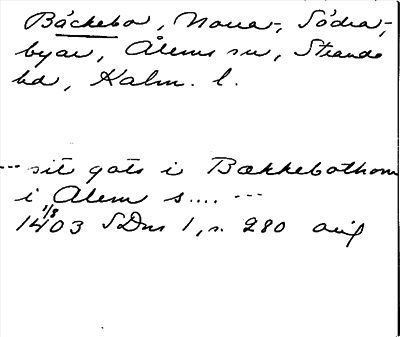 Bäckebo, Norra-, Södra-,
byar, Ålems sn, Strande
hd, Kalm. l.
--- sit gots i Bækkebothorn
i Alem s.... ---
1/8
1403 SDns 1, s. 280 avs